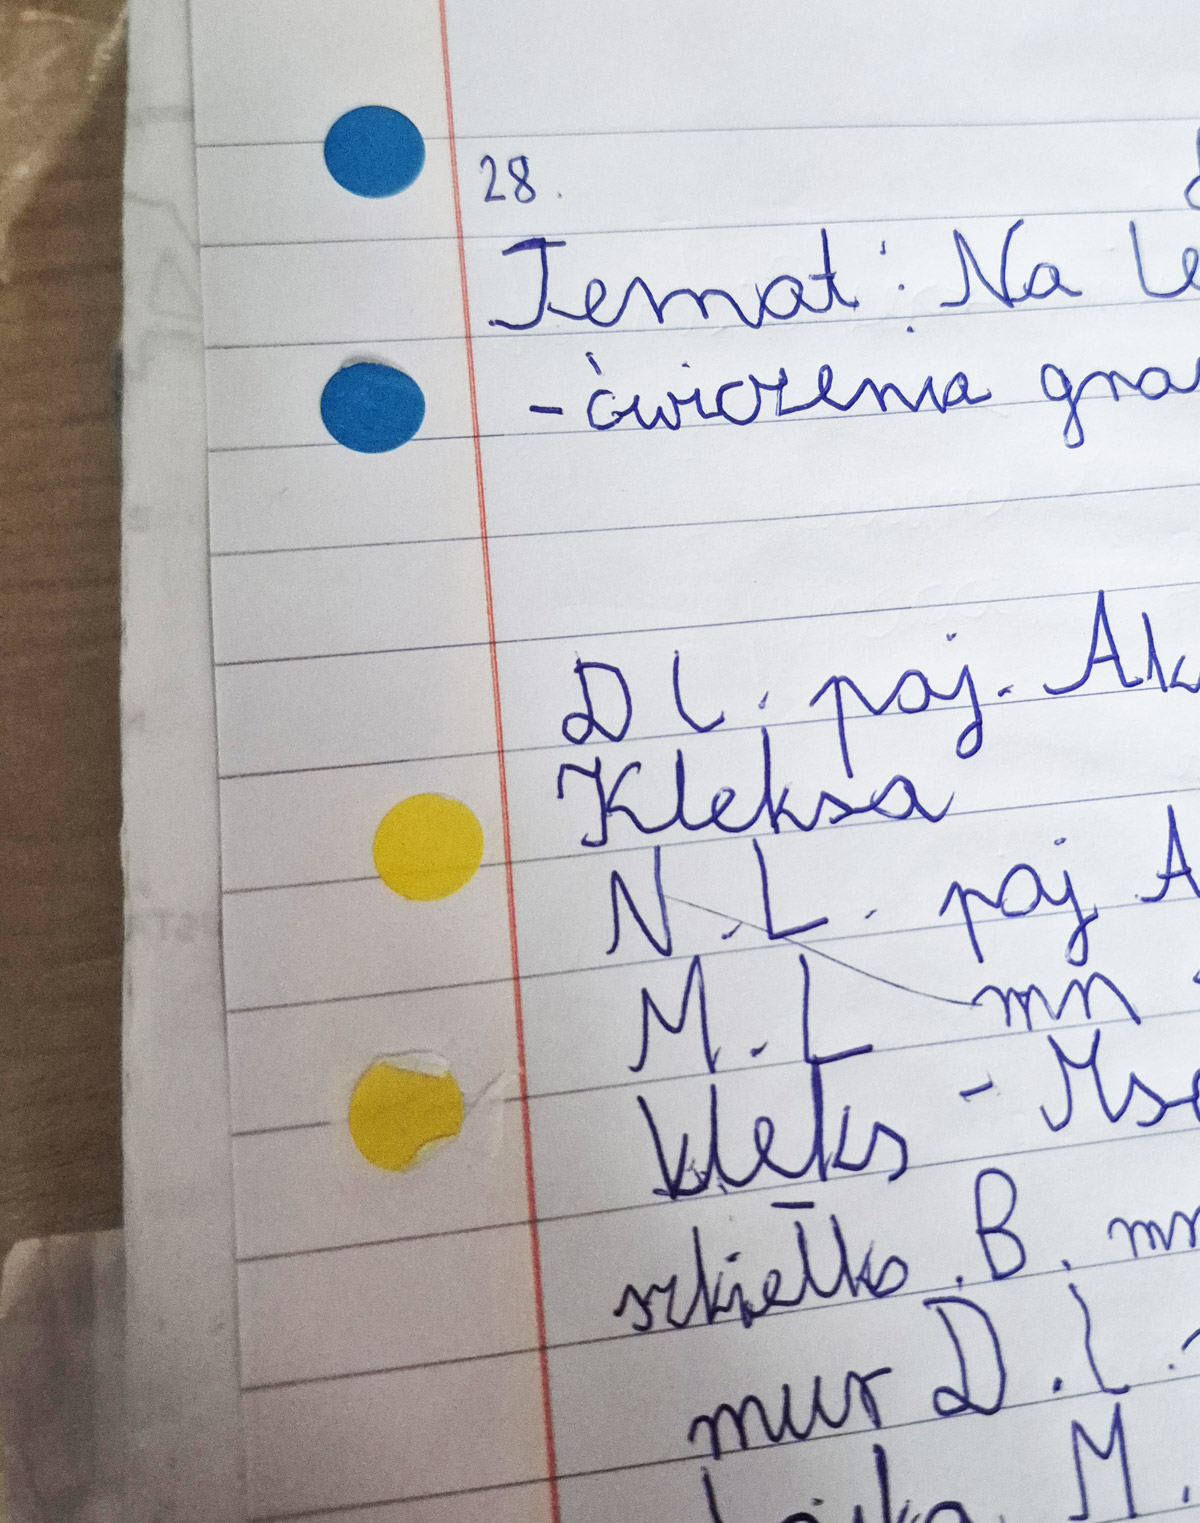 28.
Temat: Na le
- ćwiczenia gra
D l. poj. Ak
Kleksa
N. L. poj A
M. L mn
kleks -
szkiełko. B. mn
mur D. l.
M.